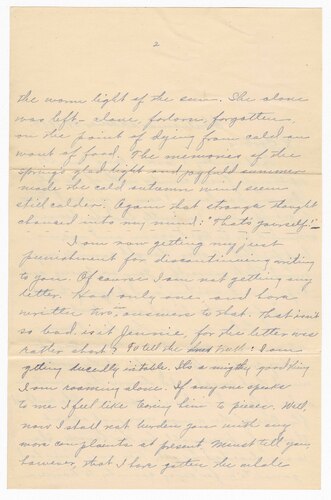 2
the warm light of the sun. She alone
was left – alone, forlorn, forgotten,
on the point of dying from cold an
want of food. The memories of the
springs glad light and joyfuld summer
made the cold autumn wind seem
still colder. Again that strange thought
chanced into my mind: "That's yourself!" –
I am now getting my just
punishment for discontinueing writing
to you. Of course I am not getting any
letter. Had only one and have
written two, answers to that. That isn't
so bad, is it Jennie, for the letter was
rather short? To tell the truth: I am
getting irritable. Its a migthy good thing
I am roaming alone. If any one speaks
to me I feel like tearing him to pieces. Well,
now I shall not burden you with any
more complaints at present. Must tell you,
however, that I have gotten the whole